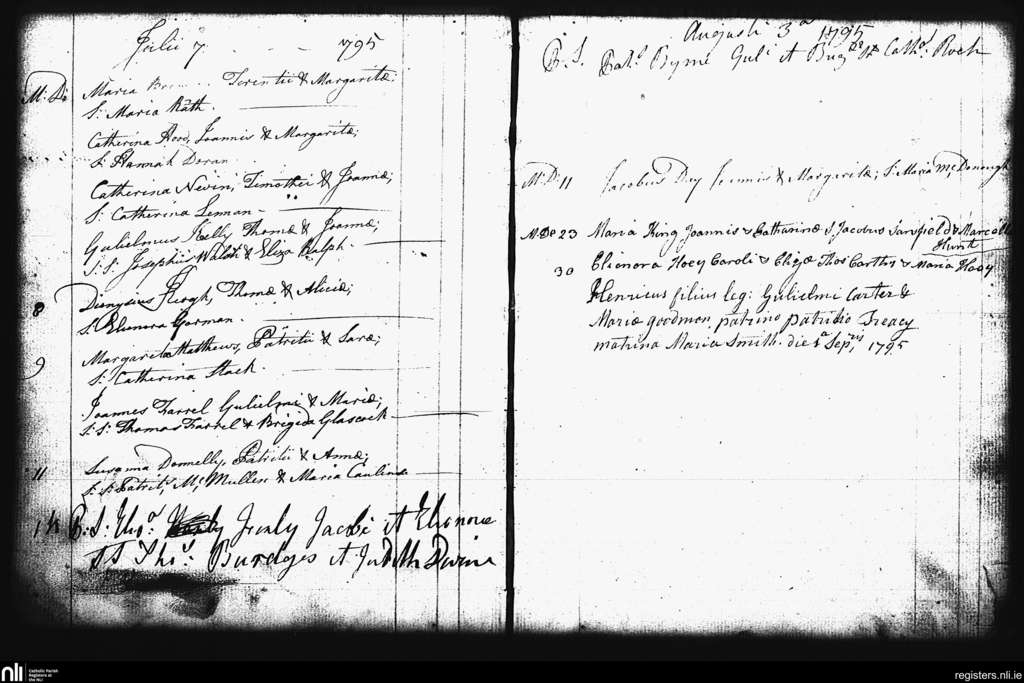 Julii 7 1795
M: D:
Maria Torentii & Margaritæ;
S: Maria Rath.
Catherina Hood, Joannis & Margaritæ;
S: Hannah Doran
Catherina Nevin, Timothei & Joannæ;
S: Catherina Leman
Gulielmus Kelly Thomæ & Joannæ;
S:S: Josephus Walsh & Eliza Ralph.
8 Dionysius Keogh, Thomæ & Aliciæ;
S: Elenora Gorman.
9 Margarita Matthews, Patritii & Saræ;
S: Catherina Stack.
Joannes Farrel Gulielmi & Mariæ;
S:S: Thomas Farrel & Brigida Glascock
11 Susanna Donnelly, Patritii & Annæ;
S:S: Patrits, Mc Mullen & Maria
14 B:S: Thos. Jacobi et Elionoræ
SS Thos. Burdges et Judith
Augusti 3a 1795
B. S. Patk. Byrne Gul: et Brigde St Cathe. Roch
M: D: 11 Jacobus Day Joannis & Margaritæ; S: Maria McDonough
M. De 23 Maria King Joannis & Catharinæ S. Jacobus Sarsfield & Marcella
Hunt
30 Elionora Hoey Caroli & Elizæ Thos Carthy & Maria Hoey
Henricus filius leg: Gulielmi Carter &
Mariæ goodman patrino patritio Treacy
matrina Maria Smith. die Sepris 1795
nli Catholic Parish
Registers at
the NLI
registers.nli.ie